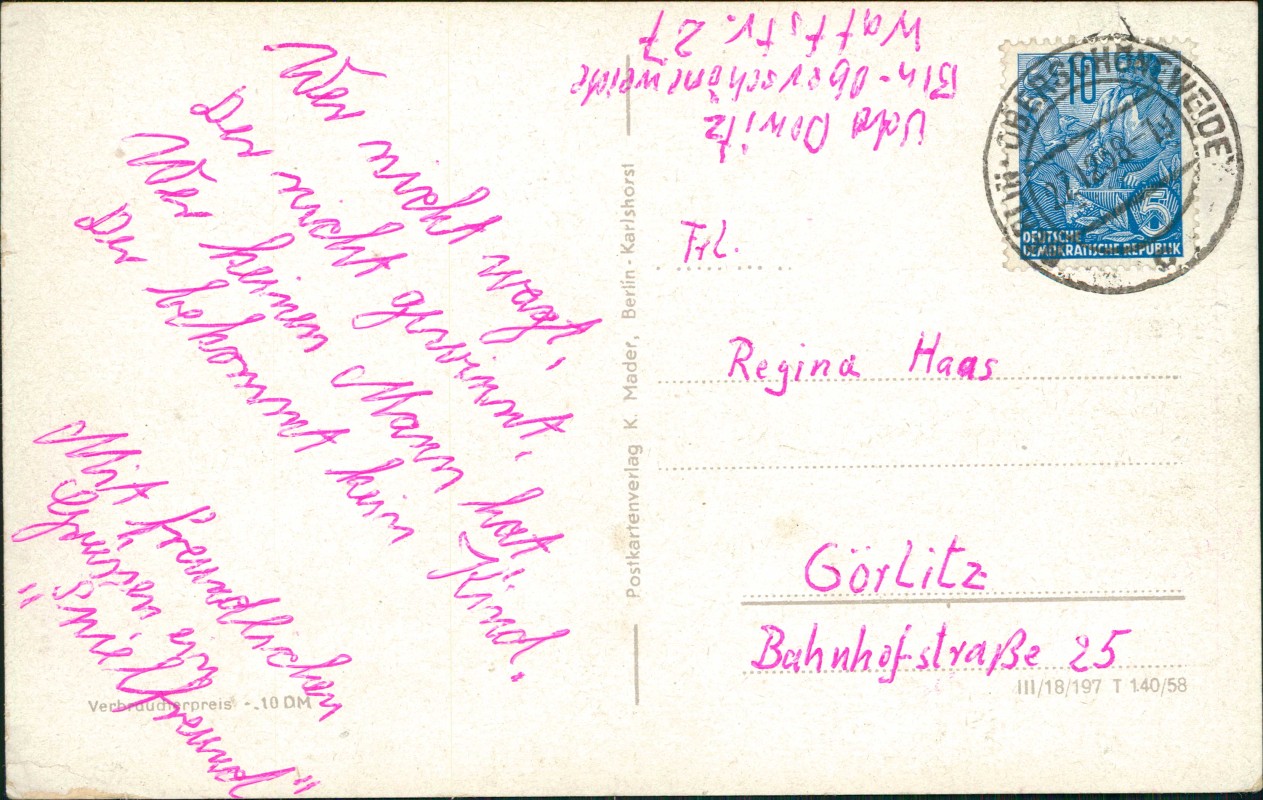 Wer nicht wagt,
Der nicht gewinnt.
Wer keinen Mann hat
Der bekommt kein Kind.
Mit freundlichen
Grüssen ein
"Spielfreund"
Verbraucherpreis -.10 DM
Postkartenverlag K. Mader, Berlin-Karlshorst
Bln-Oberschöneweide
Wattstr. 27
10
5
DEUTSCHE
DEMOKRATISCHE REPUBLIK
BERLIN-OBERSCHÖNEWEIDE
Frl.
Regina Haas
Görlitz
Bahnhofstraße 25
III/18/197 T 1.40/58